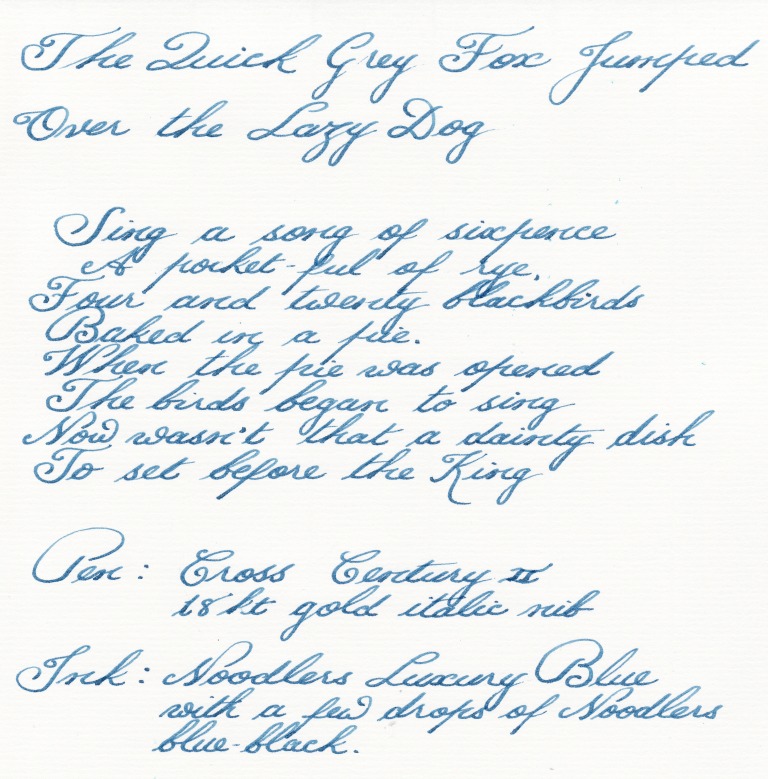 The Quick Grey Fox Jumped
Over the Lazy Dog
Sing a song of sixpence
A pocket-ful of rye,
Four and twenty blackbirds
Baked in a pie.
When the pie was opened
The birds began to sing
Now wasn't that a dainty dish
To set before the King
Pen: Cross Century II
18kt gold italic nib
Ink: Noodlers Luxury Blue
with a few drops of Noodlers
blue-black.